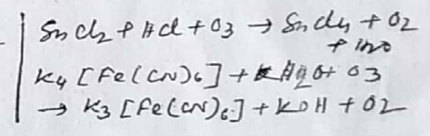 SnCl2 + HCl + O3 → SnCl4 + O2
+ H2O
K4 [Fe(CN)6] + H2O + O3
→ K3 [Fe(CN)6] + KOH + O2